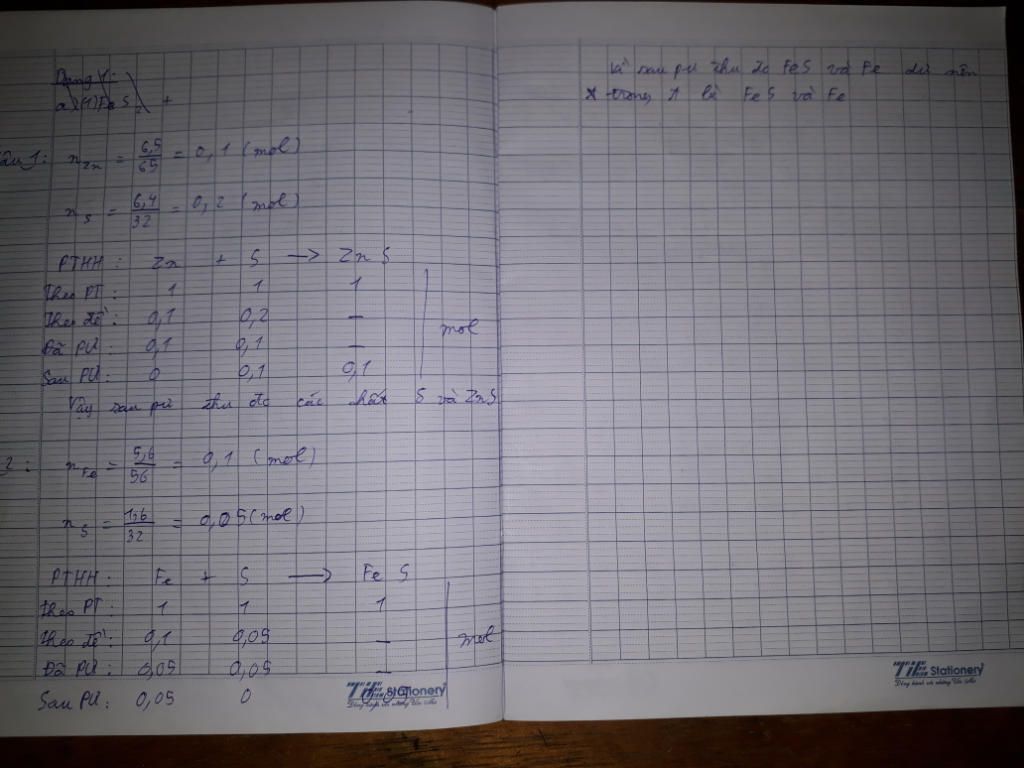 Dạng V:
a) (1) FeS2 +
Câu 1: nZn = 6,5/65 = 0,1 (mol)
nS = 6,4/32 = 0,2 (mol)
PTHH: Zn + S → ZnS
Theo PT: 1 1 1
Theo đề: 0,1 0,2 –
Đã PƯ: 0,1 0,1 –
Sau PƯ: 0 0,1 0,1
mol
Vậy sau pứ thu đc các chất S và ZnS
2: nFe = 5,6/56 = 0,1 (mol)
nS = 1,6/32 = 0,05 (mol)
PTHH: Fe + S → FeS
Theo PT: 1 1 1
Theo đề: 0,1 0,05 –
Đã PƯ: 0,05 0,05 –
Sau PƯ: 0,05 0
mol
Stationery
sau pứ thu đc FeS và Fe dư nên
trong là FeS và Fe
Stationery